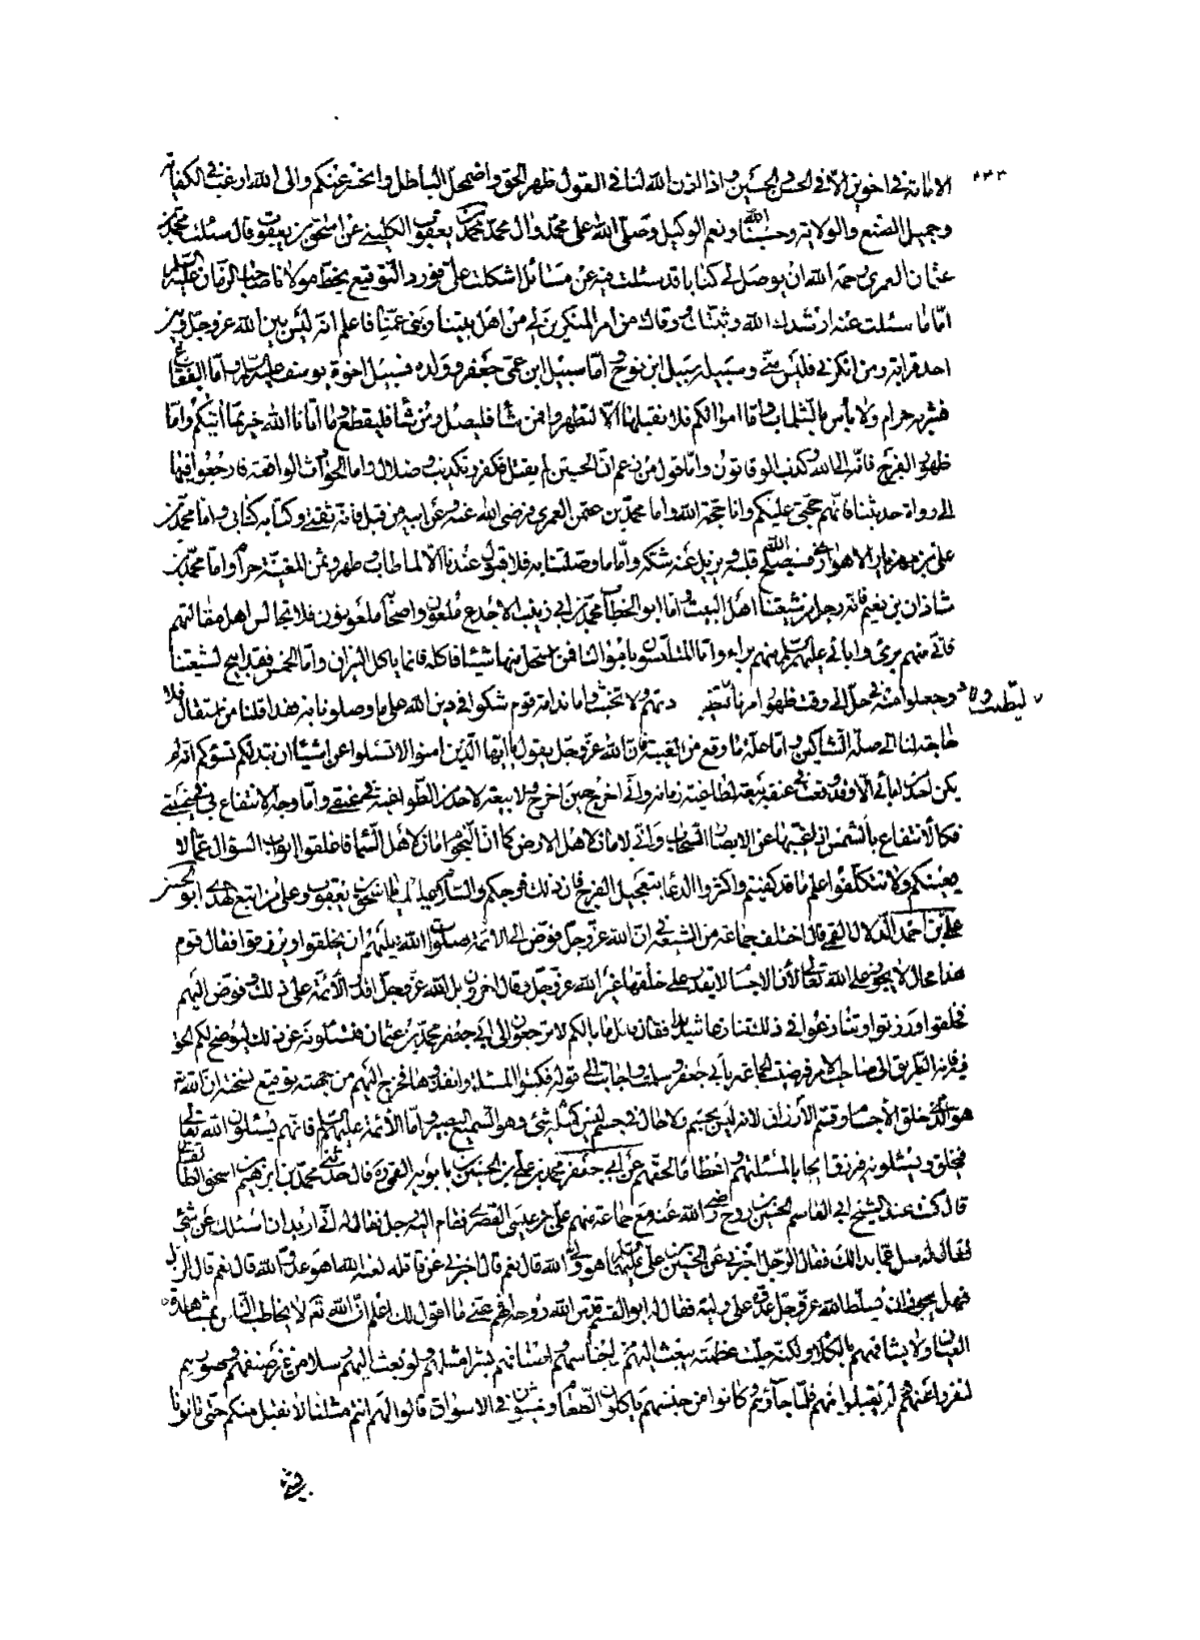 الامامة في اخوين الا في الحسن والحسين واذا اذن الله لنا في القول ظهر الحق واضمحل الباطل وانحسر عنكم والى الله ارغب في الكفاية
وجميل الصنع والولاية وحسبنا الله ونعم الوكيل وصلى الله على محمد وال محمد محمد بن يعقوب الكليني عن اسحق بن يعقوب قال سئلت محمد بن
عثمان العمري رحمه الله ان يوصل لي كتابا قد سئلت فيه عن مسائل اشكلت علي فورد التوقيع بخط مولانا صاحب الزمان عليه السلم
اما ما سئلت عنه ارشدك الله وثبتك ووقاك من امر المنكرين لي من اهل بيتنا وبني عمنا فاعلم انه ليس بين الله عز وجل وبين
احد قرابة ومن انكرني فليس مني وسبيله سبيل ابن نوح اما سبيل ابن عمي جعفر وولده فسبيل اخوة يوسف عليه السلم واما الفقاع
فشربه حرام ولا بأس بالشلماب واما اموالكم فلا نقبلها الا لتطهروا فمن شا فليصل ومن شا فليقطع ما اتانا الله خير مما اتيكم واما
ظهور الفرج فانه الى الله وكذب الوقاتون واما قول من زعم ان الحسين لم يقتل فكفر وتكذيب وضلال واما الحوادث الواقعة فارجعوا فيها
الى رواة حديثنا فانهم حجتي عليكم وانا حجة الله واما محمد بن عثمن العمري فرضي الله عنه وعن ابيه من قبل فانه ثقتي وكتابه كتابي واما محمد بن
علي بن مهزيار الاهوازي فسيصلح الله قلبه ويزيل عنه شكه واما ما وصلتنا به فلا قبول عندنا الا لما طاب وطهر وثمن المغنية حرام واما محمد بن
شاذان بن نعيم فانه رجل من شيعتنا اهل البيت واما ابو الخطاب محمد بن ابي زينب الاجدع ملعون واصحابه ملعونون فلا تجالس اهل مقالتهم
فاني منهم بريء واباءي عليهم السلم منهم براء واما المتلبسون باموالنا فمن استحل منها شيئا فاكله فانما ياكل النيران واما الخمس فقد ابيح لشيعتنا
وجعلوا منه في حل الى وقت ظهور امرنا لتطيب ولادتهم ولا تخبث واما ندامة قوم شكوا في دين الله على ما وصلونا به فقد اقلنا من استقال فلا
حاجة لنا الى صلة الشاكين واما علة ما وقع من الغيبة فان الله عز وجل يقول يا ايها الذين امنوا لا تسئلوا عن اشيا ان تبد لكم تسؤكم انه لم
يكن احد من ابائي الا وقد وقعت في عنقه بيعة لطاغية زمانه واني اخرج حين اخرج ولا بيعة لاحد من الطواغيت في عنقي واما وجه الانتفاع بي في غيبتي
فكالانتفاع بالشمس اذا غيبها عن الابصار السحاب واني لامان لاهل الارض كما ان النجوم امان لاهل السما فاغلقوا ابواب السؤال عما لا
يعنيكم ولا تتكلفوا علم ما قد كفيتم واكثروا الدعا بتعجيل الفرج فان ذلك فرجكم والسلام عليك يا اسحق بن يعقوب وعلى من اتبع الهدى ابو الحسن
علي بن احمد الدلال القمي قال اختلف جماعة من الشيعة في ان الله عز وجل فوض الى الائمة صلوات الله عليهم ان يخلقوا ويرزقوا فقال قوم
هذا محال لا يجوز على الله تعالى لان الاجسام لا يقدر على خلقها غير الله عز وجل وقال اخرون بل الله عز وجل اقدر الائمة على ذلك وفوض اليهم
فخلقوا ورزقوا وتنازعوا في ذلك تنازعا شديدا فقال قائل ما بالكم لا ترجعون الى ابي جعفر محمد بن عثمان فتسئلونه عن ذلك ليوضح لكم الحق
فيه فانه الطريق الى صاحب الامر فرضيت الجماعة بابي جعفر وسلمت واجابت الى قوله فكتبوا المسئلة وانفذوها فخرج اليهم من جهته توقيع نسخته ان الله تع
هو الذي خلق الاجسام وقسم الارزاق لانه ليس بجسم ولا حال في جسم ليس كمثله شيء وهو السميع البصير واما الائمة عليهم السلم فانهم يسئلون الله تعالى
فيخلق ويسئلونه فيرزق ايجابا لمسئلتهم واعظاما لحقهم عن ابي جعفر محمد بن علي بن الحسين بن بابويه القمي ره قال حدثني محمد بن ابرهيم بن اسحق الطالقاني
قال كنت عند الشيخ ابي القاسم الحسين بن روح رضي الله عنه مع جماعة منهم علي بن عيسى القصري فقام اليه رجل فقال له اني اريد ان اسئلك عن شيء
فقال له سل عما بدا لك فقال الرجل اخبرني عن الحسين بن علي عليهما السلم اهو ولي الله قال نعم قال اخبرني عن قاتله لعنه الله اهو عدو الله قال نعم قال الرجل
فهل يجوز ان يسلط الله عز وجل عدوه على وليه فقال له ابو القسم قدس الله روحه افهم عني ما اقول لك اعلم ان الله تع لا يخاطب الناس بمشاهدة
العيان ولا يشافههم بالكلام ولكنه جلت عظمته يبعث اليهم من اجناسهم واصنافهم بشرا مثلهم ولو بعث اليهم رسلا من غير صنفهم وصورهم
لنفروا عنهم ولم يقبلوا منهم فلما جآؤهم وكانوا من جنسهم ياكلون الطعام ويمشون في الاسواق قالوا لهم انتم مثلنا لا نقبل منكم حتى تاتونا
بشيء